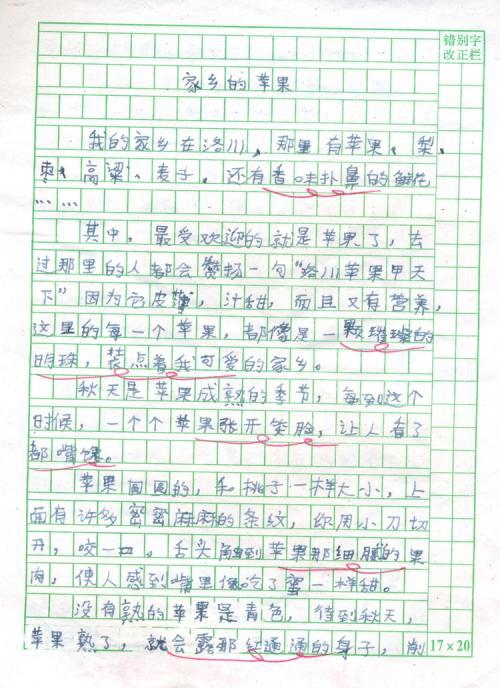 错别字
改正栏
家乡的苹果
我的家乡在洛川，那里有苹果、梨、
枣、高粱、麦子，还有香味扑鼻的鲜花
……
其中，最受欢迎的就是苹果了，去
过那里的人都会赞扬一句“洛川苹果甲天
下”因为它皮薄，汁甜，而且又有营养，
这里的每一个苹果，都像是一颗璀璨的
明珠，装点着我可爱的家乡。
秋天是苹果成熟的季节，每到这个
时候，一个个苹果张开笑脸，让人看了
都嘴馋。
苹果圆圆的，和桃子一样大小，上
面有许多密密麻麻的条纹，你用小刀切
开，咬一口，舌头触到苹果那细腻的果
肉，使人感到嘴里像吃了蜜一样甜。
没有熟的苹果是青色，待到秋天，
苹果熟了，就会露那红通通的身子，削
17×20